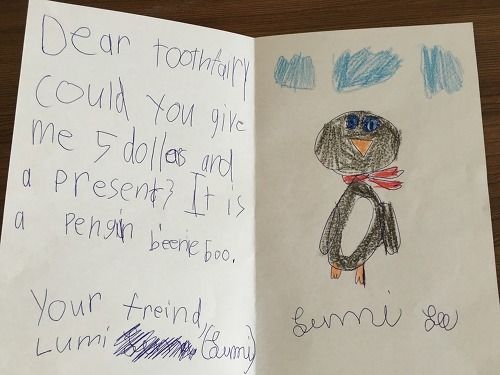 Dear toothfairy
could you give
me 5 dollers and
a present? It is
a pengin beenie boo.
Your freind,
Lumi (Lumi)
Lumi Lee